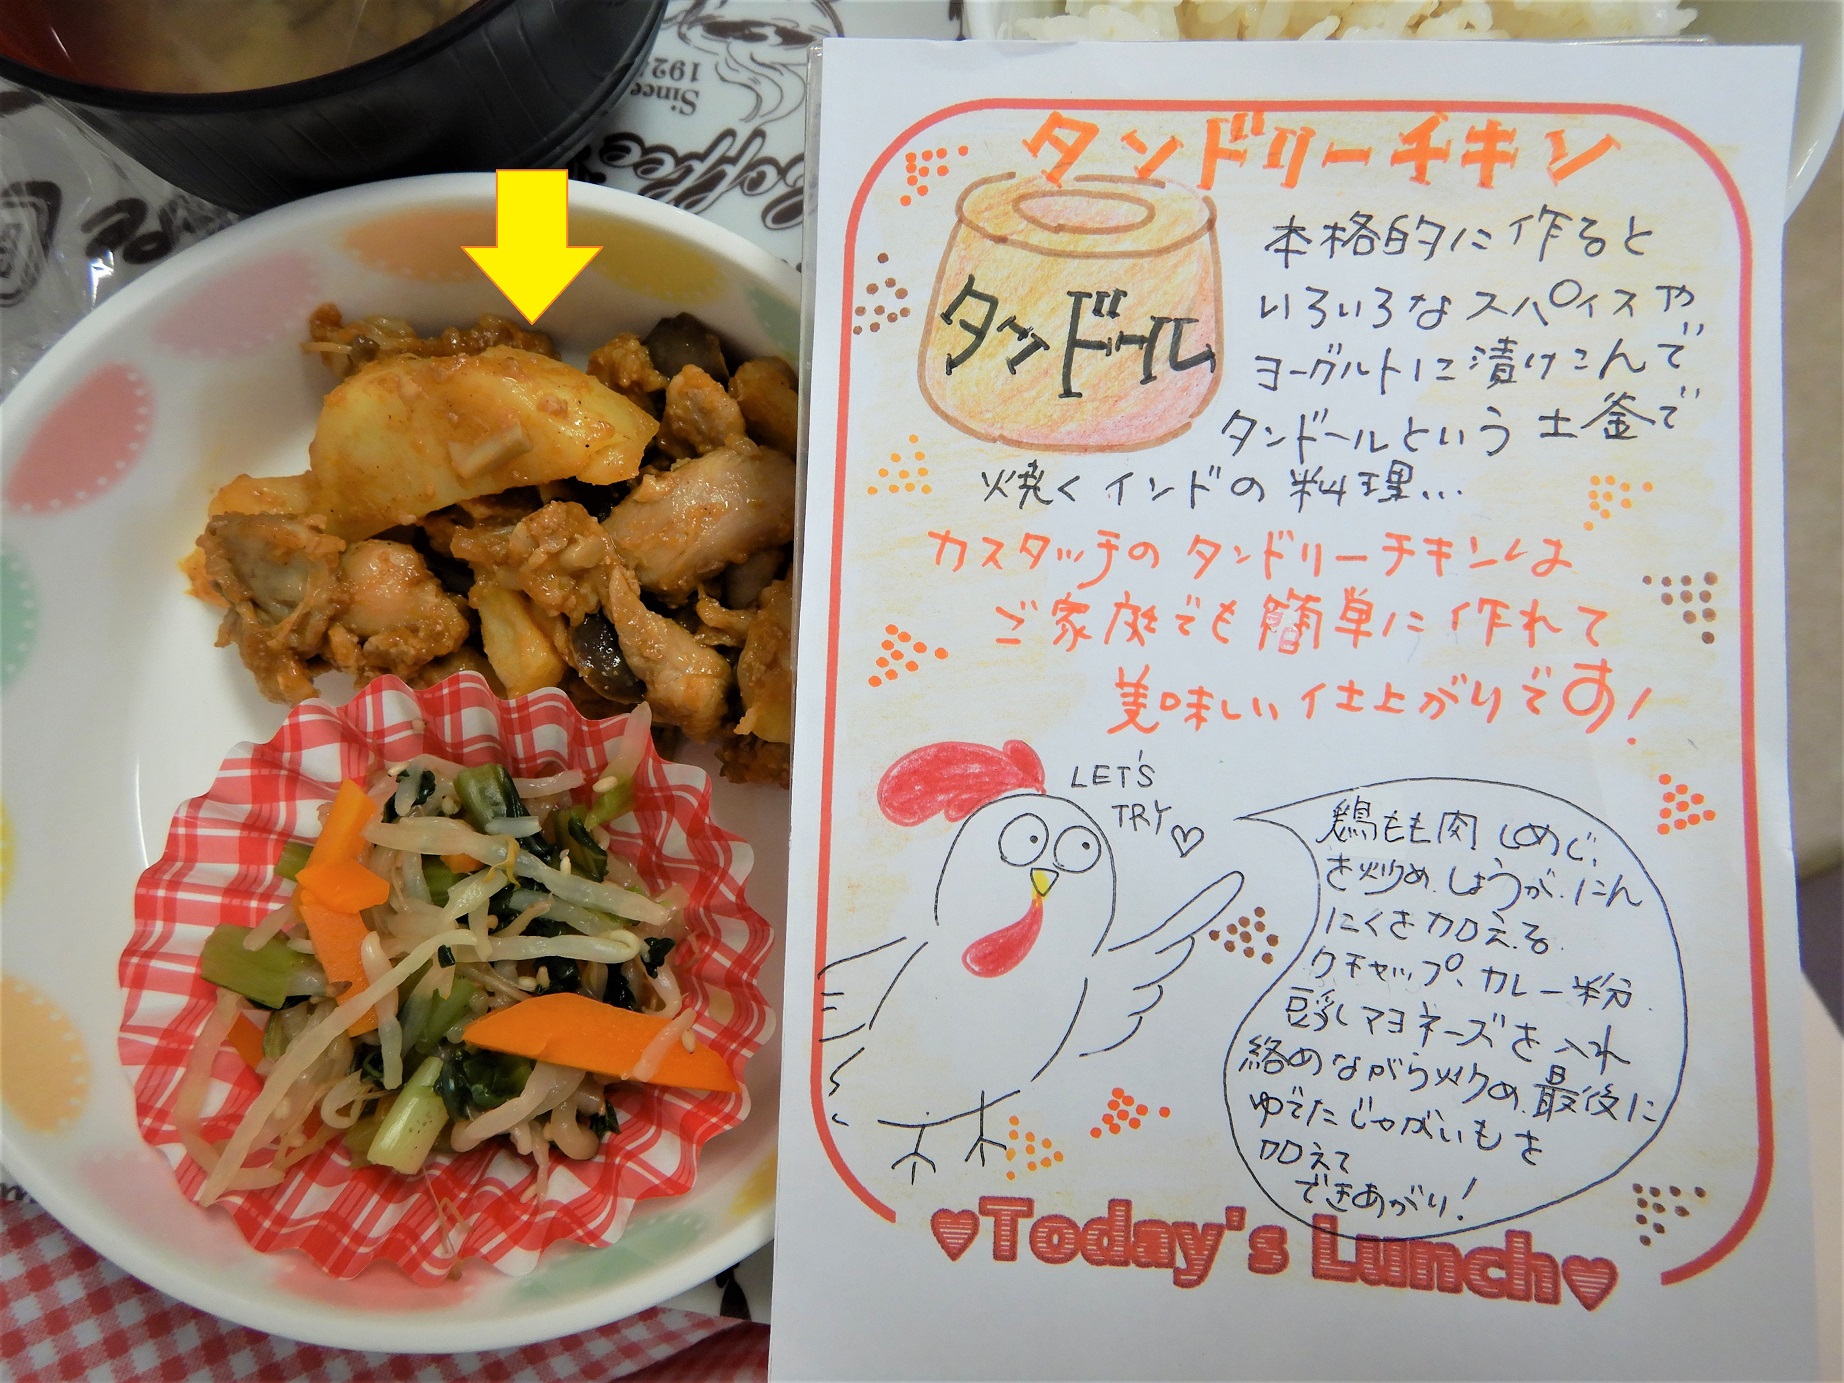 Since 192
Coffee
タンドリーチキン
タンドール
本格的に作ると
いろいろなスパイスや
ヨーグルトに漬けこんで
タンドールという土釜で
焼くインドの料理...
カスタッチのタンドリーチキンは
ご家庭でも簡単に作れて
美味しい仕上がりです!
LET'S
TRY♡
鶏もも肉 しめじ、
を炒め、しょうが、にん
にくを加える。
ケチャップ、カレー粉、
豆乳マヨネーズを入れ
絡めながら炒め、最後に
ゆでたじゃがいもを
加えて
できあがり!
♥Today's Lunch♥